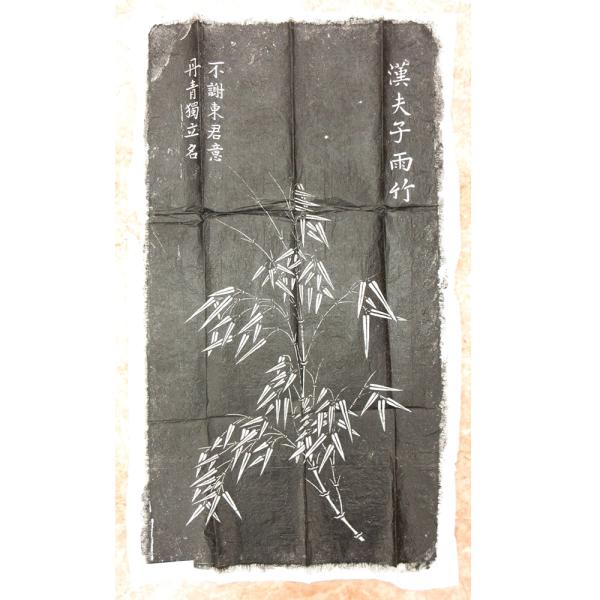 漢夫子雨竹
不謝東君意
丹青獨立名